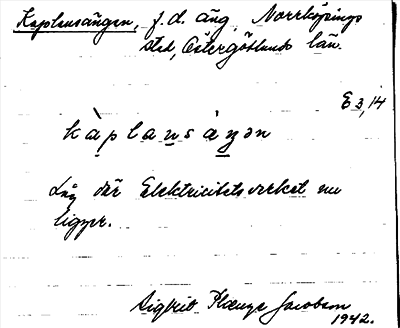 Kaplansängen, f.d. äng, Norrköpings
stad, Östergötlands län.
E 3, 14
kàplansàŋən
Låg där Elektricitetsverket nu
ligger.
Sigfrid Jacobson
1942.